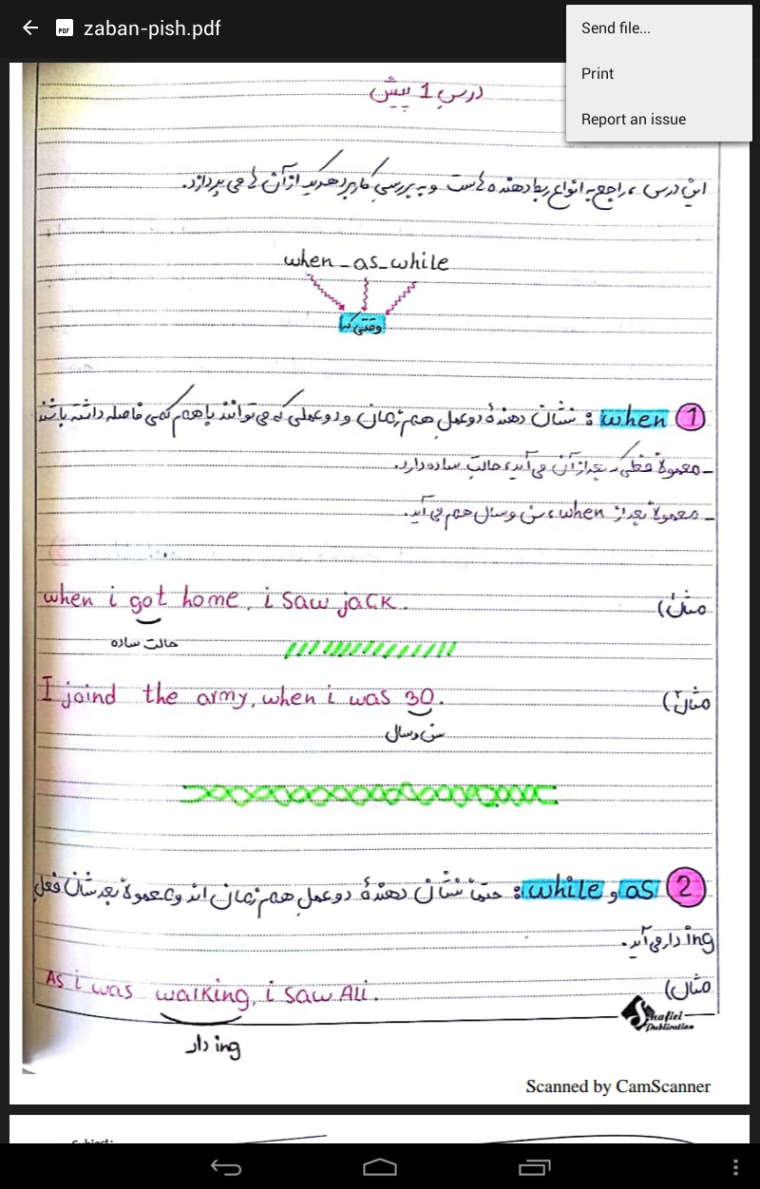 zaban-pish.pdf
Send file...
Print
Report an issue
درس 1 پیش
این درس، راجع به انواع ربط دهنده هاست و به بررسی کاربرد هر یک از آن ها می پردازد.
when - as - while
وقتی که
1 when : نشان دهندهٔ دو عمل هم زمان و دو عملی که می توانند باهم کمی فاصله داشته باشند
- معمولاً فعلی که بعد از آن می آید، حالت ساده دارد.
- معمولاً بعد از when، سن و سال هم می آید.
مثال) when i got home, i saw jack.
حالت ساده
مثال) I joind the army, when i was 30.
سن و سال
2 as و while : حتماً نشان دهندهٔ دو عمل هم زمان اند و معمولاً بعدشان فعل
ing دار می آید.
مثال) As i was walking, i saw Ali.
ing دار
Shafiei
Publication
Scanned by CamScanner